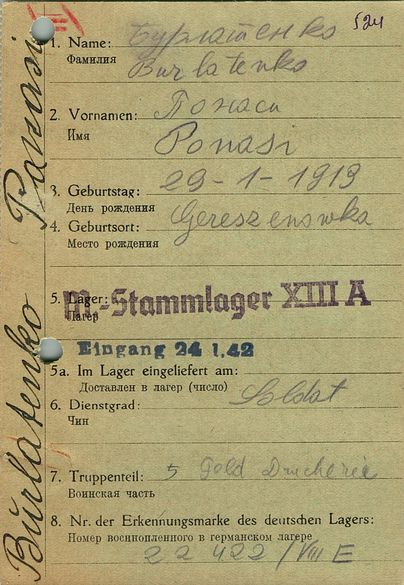 524
1. Name: Бурлатенко
Фамилия Burlatenko
2. Vornamen: Понаси
Имя Ponasi
3. Geburtstag: 29-1-1919
День рождения
4. Geburtsort: Gereszenowka
Место рождения
5. Lager: M.-Stammlager XIII A
Лагерь
Eingang 24 1.42
5a. Im Lager eingeliefert am:
Доставлен в лагерь (число)
6. Dienstgrad: Soldat
Чин
7. Truppenteil: 5
Воинская часть
8. Nr. der Erkennungsmarke des deutschen Lagers:
Номер военнопленного в германском лагере
22422/VIII E
Burlatenko Panasi